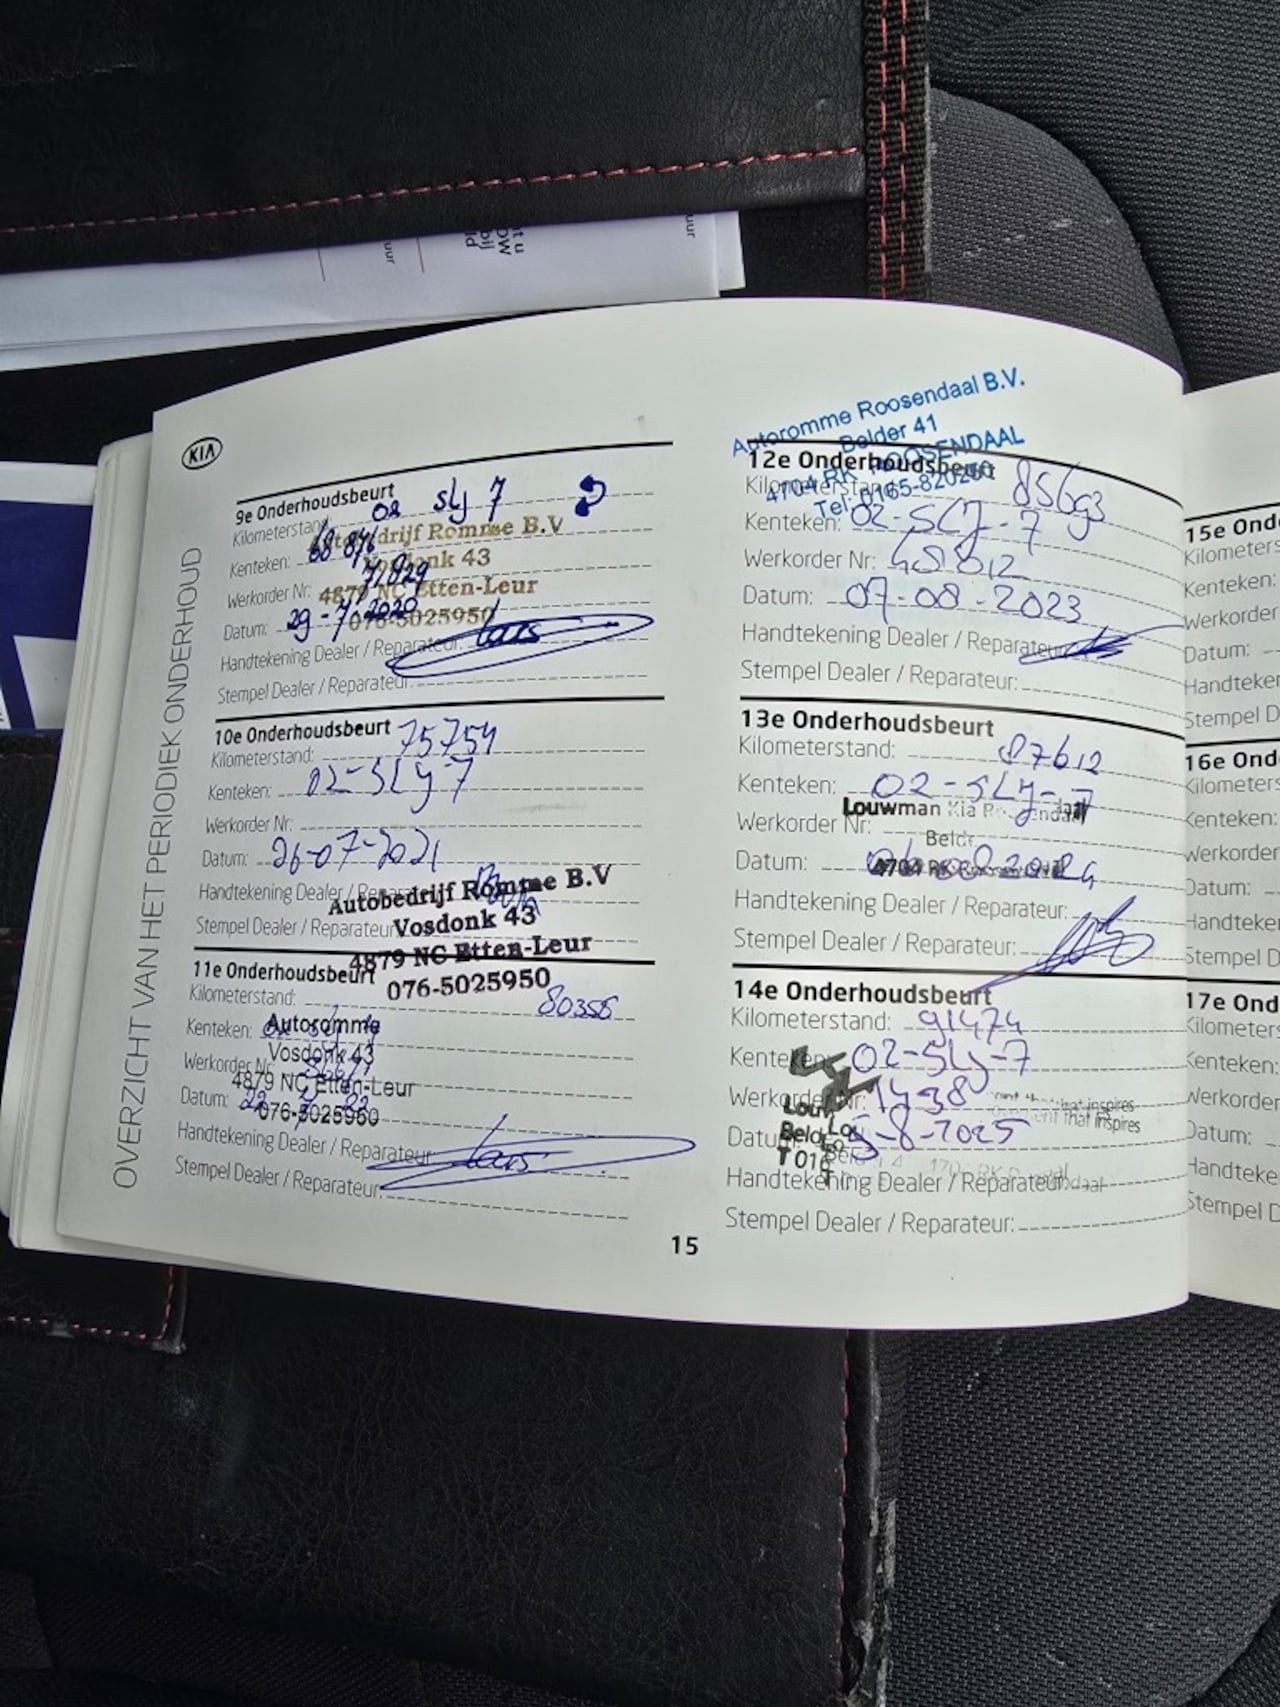 KIA
OVERZICHT VAN HET PERIODIEK ONDERHOUD
9e Onderhoudsbeurt
02 SLJ 7
Kilometerstand:
68 876
Autobedrijf Romme B.V
Kenteken:
Vosdonk 43
Werkorder Nr: 71829
4879 NC Etten-Leur
Datum: 29-7-2020
076-5025950
Handtekening Dealer / Reparateur: Lars
Stempel Dealer / Reparateur:
10e Onderhoudsbeurt
Kilometerstand: 75754
Kenteken: 02-SLJ-7
Werkorder Nr:
Datum: 26-07-2021
Handtekening Dealer / Reparateur:
Autobedrijf Romme B.V
Stempel Dealer / Reparateur:
Vosdonk 43
4879 NC Etten-Leur
076-5025950
11e Onderhoudsbeurt
Kilometerstand: 80358
Kenteken:
Autoromme
Vosdonk 43
Werkorder Nr:
4879 NC Etten-Leur
Datum: 22
076-5025950
Handtekening Dealer / Reparateur: Lars
Stempel Dealer / Reparateur:
Autoromme Roosendaal B.V.
Belder 41
4704 RK ROOSENDAAL
Tel: 0165-820200
12e Onderhoudsbeurt
Kilometerstand: 85693
Kenteken: 02-SLJ-7
Werkorder Nr: 48812
Datum: 07-08-2023
Handtekening Dealer / Reparateur:
Stempel Dealer / Reparateur:
13e Onderhoudsbeurt
Kilometerstand: 87612
Kenteken: 02-SLJ-7
Louwman Kia Roosendaal
Werkorder Nr:
Datum:
4704 RK
Handtekening Dealer / Reparateur:
Stempel Dealer / Reparateur:
14e Onderhoudsbeurt
Kilometerstand: 91474
Kenteken: 02-SLJ-7
Werkorder Nr: 1498
that inspires
that inspires
Datum: 5-8-2025
Handtekening Dealer / Reparateur:
Stempel Dealer / Reparateur:
15
15e Ond
Kilometers
Kenteken:
Werkorder
Datum:
Handteken
Stempel D
16e Ond
Kilometers
Kenteken:
Werkorder
Datum:
Handteke
Stempel D
17e Ond
Kilometers
Kenteken:
Werkorder
Datum:
Handteke
Stempel D